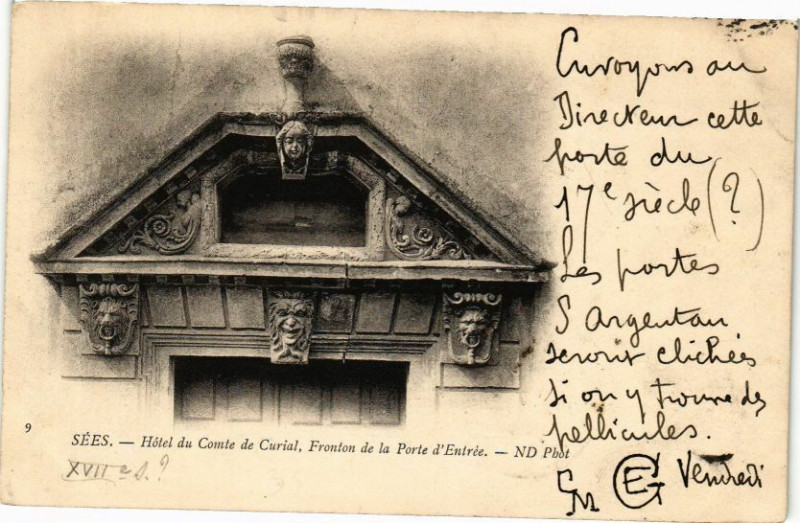 Envoyons au
Directeur cette
porte du
17e siècle (?)
Les portes
d'Argentan
seront clichées
si on y trouve des
pellicules.
GM GE Vendredi
9
SÉES. — Hôtel du Comte de Curial, Fronton de la Porte d'Entrée. — ND Phot
XVIIe s. ?